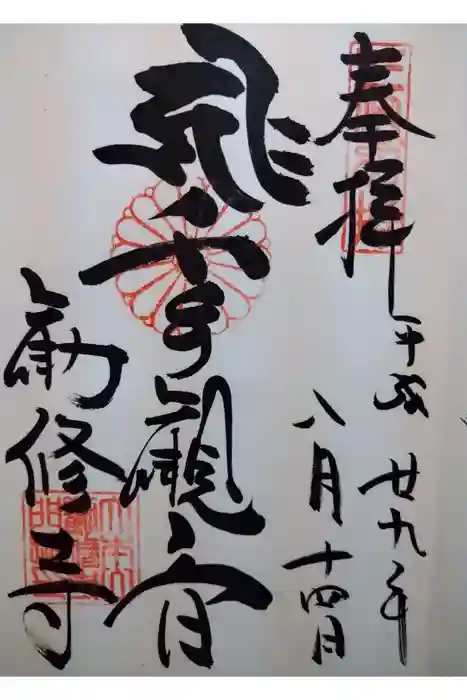 奉拝
平成廿九年
八月十四日
千手観音
勧修寺